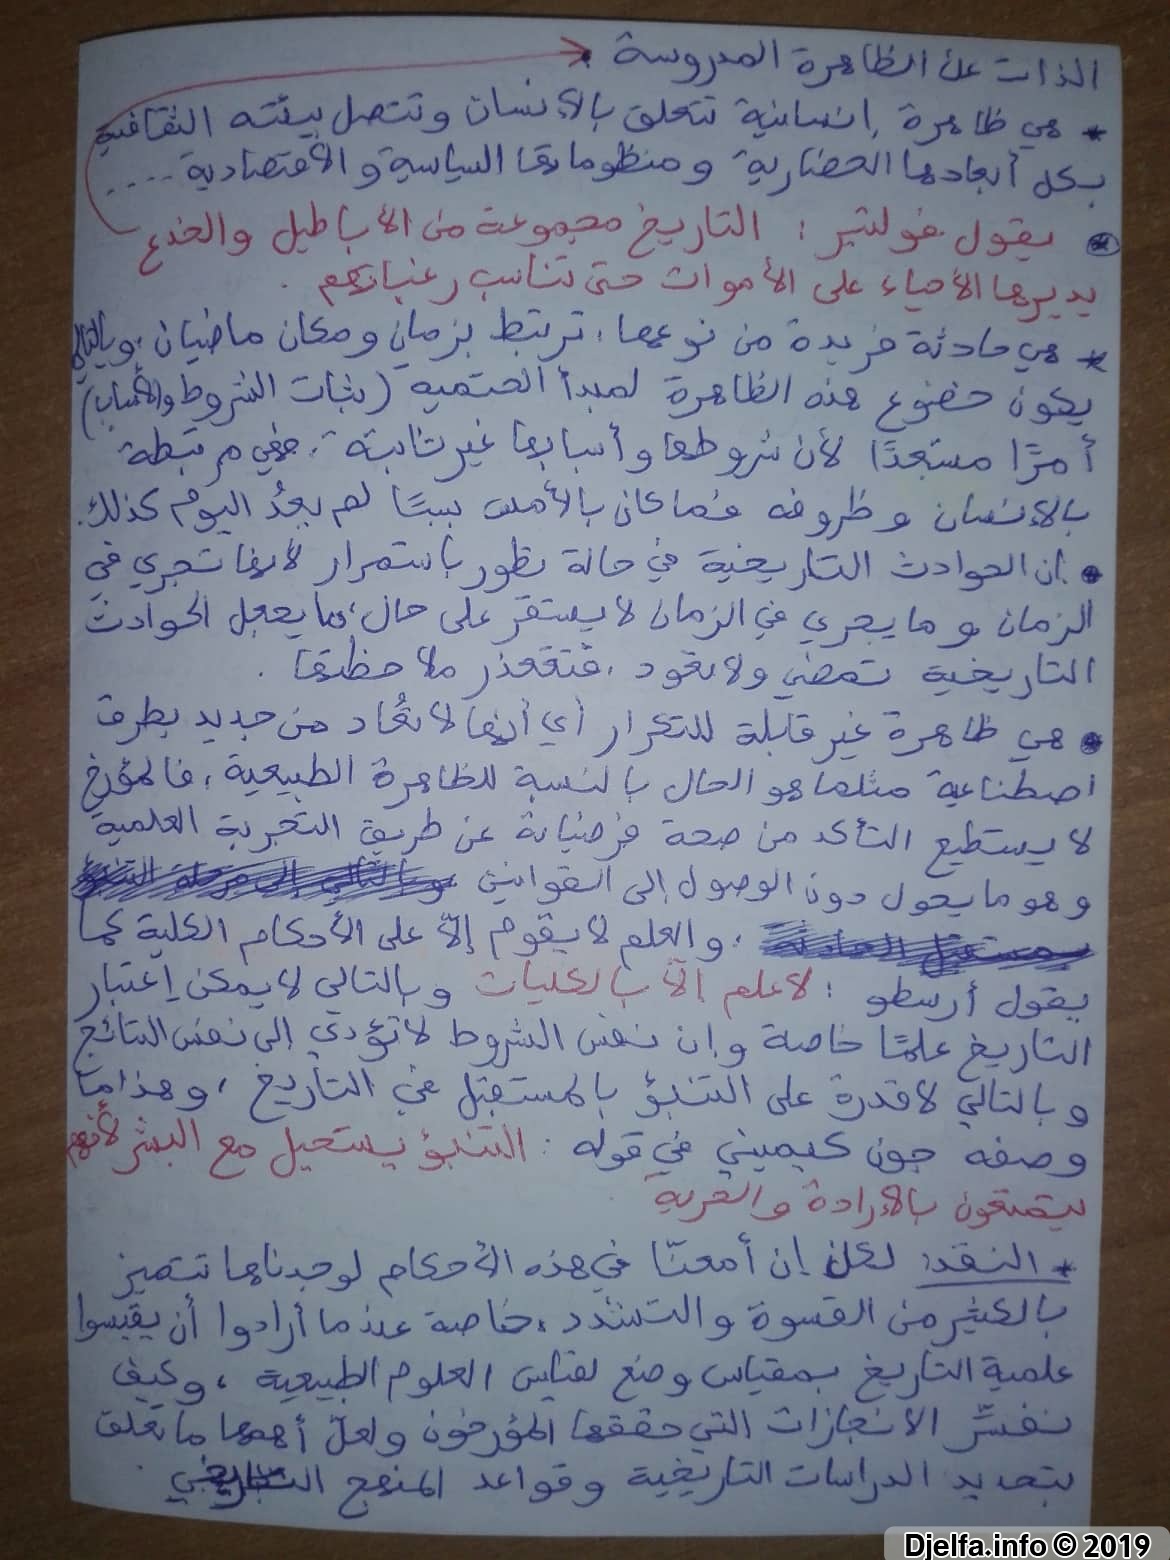 الذات عن الظاهرة المدروسة .
* هي ظاهرة إنسانية تتعلق بالإنسان وتتصل ببيئته الثقافية
بكل أبعادها الحضارية ومنظوماتها السياسية والاقتصادية ....
* يقول فولتير : التاريخ مجموعة من الأباطيل والخدع
يديرها الأحياء على الأموات حتى تناسب رغباتهم .
* هي حادثة فريدة من نوعها، ترتبط بزمان ومكان ماضيان، وبالتالي
يكون خضوع هذه الظاهرة لمبدأ الحتمية (ثبات الشروط والأسباب)
أمرًا مستبعدًا لأن شروطها وأسبابها غير ثابتة ، فهي مرتبطة
بالإنسان وظروفه فما كان بالأمس سببًا لم يعدُ اليوم كذلك.
• إن الحوادث التاريخية في حالة تطور باستمرار لأنها تجري في
الزمان وما يجري في الزمان لا يستقر على حال، ما يجعل الحوادث
التاريخية تمضي ولا تعود ، فتتعذر ملاحظتها .
• هي ظاهرة غير قابلة للتكرار أي أنها لا تُعاد من جديد بطرق
اصطناعية مثلما هو الحال بالنسبة للظاهرة الطبيعية ، فالمؤرخ
لا يستطيع التأكد من صحة فرضياته عن طريق التجربة العلمية
وهو ما يحول دون الوصول إلى القوانين وبالتالي إلى مرحلة التنبؤ
بمستقبل الحادثة ، والعلم لا يقوم إلاّ على الأحكام الكلية كما
يقول أرسطو : لا علم إلاّ بالكليات وبالتالي لا يمكن إعتبار
التاريخ علمًا خاصة وإن نفس الشروط لا تؤدي إلى نفس النتائج
وبالتالي لا قدرة على التنبؤ بالمستقبل في التاريخ ، وهذا ما
وصفه جون كيميني في قوله : التنبؤ يستحيل مع البشر لأنهم
يتمتعون بالإرادة والحرية
* النقد: لكن إن أمعنّا في هذه الأحكام لوجدناها تتميز
بالكثير من القسوة والتشدد ، خاصة عندما أرادوا أن يقيسوا
علمية التاريخ بمقياس وضع لقياس العلوم الطبيعية ، وكيف
نفسِّر الانجازات التي حققها المؤرخون ولعلّ أهمها ما تعلق
بتحديد الدراسات التاريخية وقواعد المنهج التاريخي .
Djelfa.info © 2019